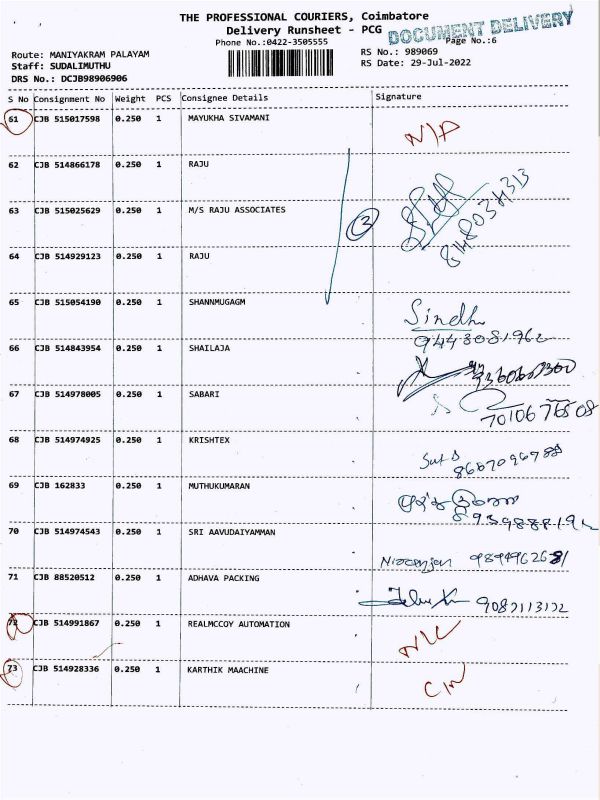 THE PROFESSIONAL COURIERS, Coimbatore
Delivery Runsheet - PCG
DOCUMENT DELIVERY
Phone No.:0422-3505555
Page No.:6
Route: MANIYAKRAM PALAYAM
RS No.: 989069
Staff: SUDALIMUTHU
RS Date: 29-Jul-2022
DRS No.: DCJB98906906
S No Consignment No Weight PCS Consignee Details Signature
61 CJB 515017598 0.250 1 MAYUKHA SIVAMANI N/A
62 CJB 514866178 0.250 1 RAJU
63 CJB 515025629 0.250 1 M/S RAJU ASSOCIATES 3
64 CJB 514929123 0.250 1 RAJU
65 CJB 515054190 0.250 1 SHANNMUGAGM Sindhu
9443081962
66 CJB 514843954 0.250 1 SHAILAJA
67 CJB 514978005 0.250 1 SABARI
68 CJB 514974925 0.250 1 KRISHTEX
69 CJB 162833 0.250 1 MUTHUKUMARAN
70 CJB 514974543 0.250 1 SRI AAVUDAIYAMMAN Niranjan
71 CJB 88520512 0.250 1 ADHAVA PACKING
72 CJB 514991867 0.250 1 REALMCCOY AUTOMATION
73 CJB 514928336 0.250 1 KARTHIK MAACHINE